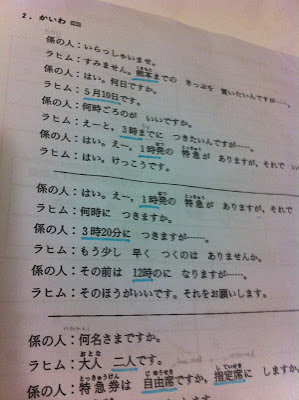 2．かいわ
係の人：いらっしゃいませ。
ラヒム：すみません。熊本までの きっぷを 買いたいんですが……。
係の人：はい。何日ですか。
ラヒム：５月10日です。
係の人：何時ごろのが いいですか。
ラヒム：えーと、３時までに つきたいんですが……。
係の人：はい。えー、１時発の 特急が ありますが、それで
ラヒム：はい、けっこうです。
係の人：はい。えー、１時発の 特急が ありますが、それで
ラヒム：何時に つきますか。
係の人：３時20分に つきますが……。
ラヒム：もう少し 早く つくのは ありませんか。
係の人：その前は 12時のに なりますが……。
ラヒム：そのほうがいいです。それをお願いします。
係の人：何名さまですか。
ラヒム：大人 二人です。
係の人：特急券は 自由席ですか、指定席に しますか。